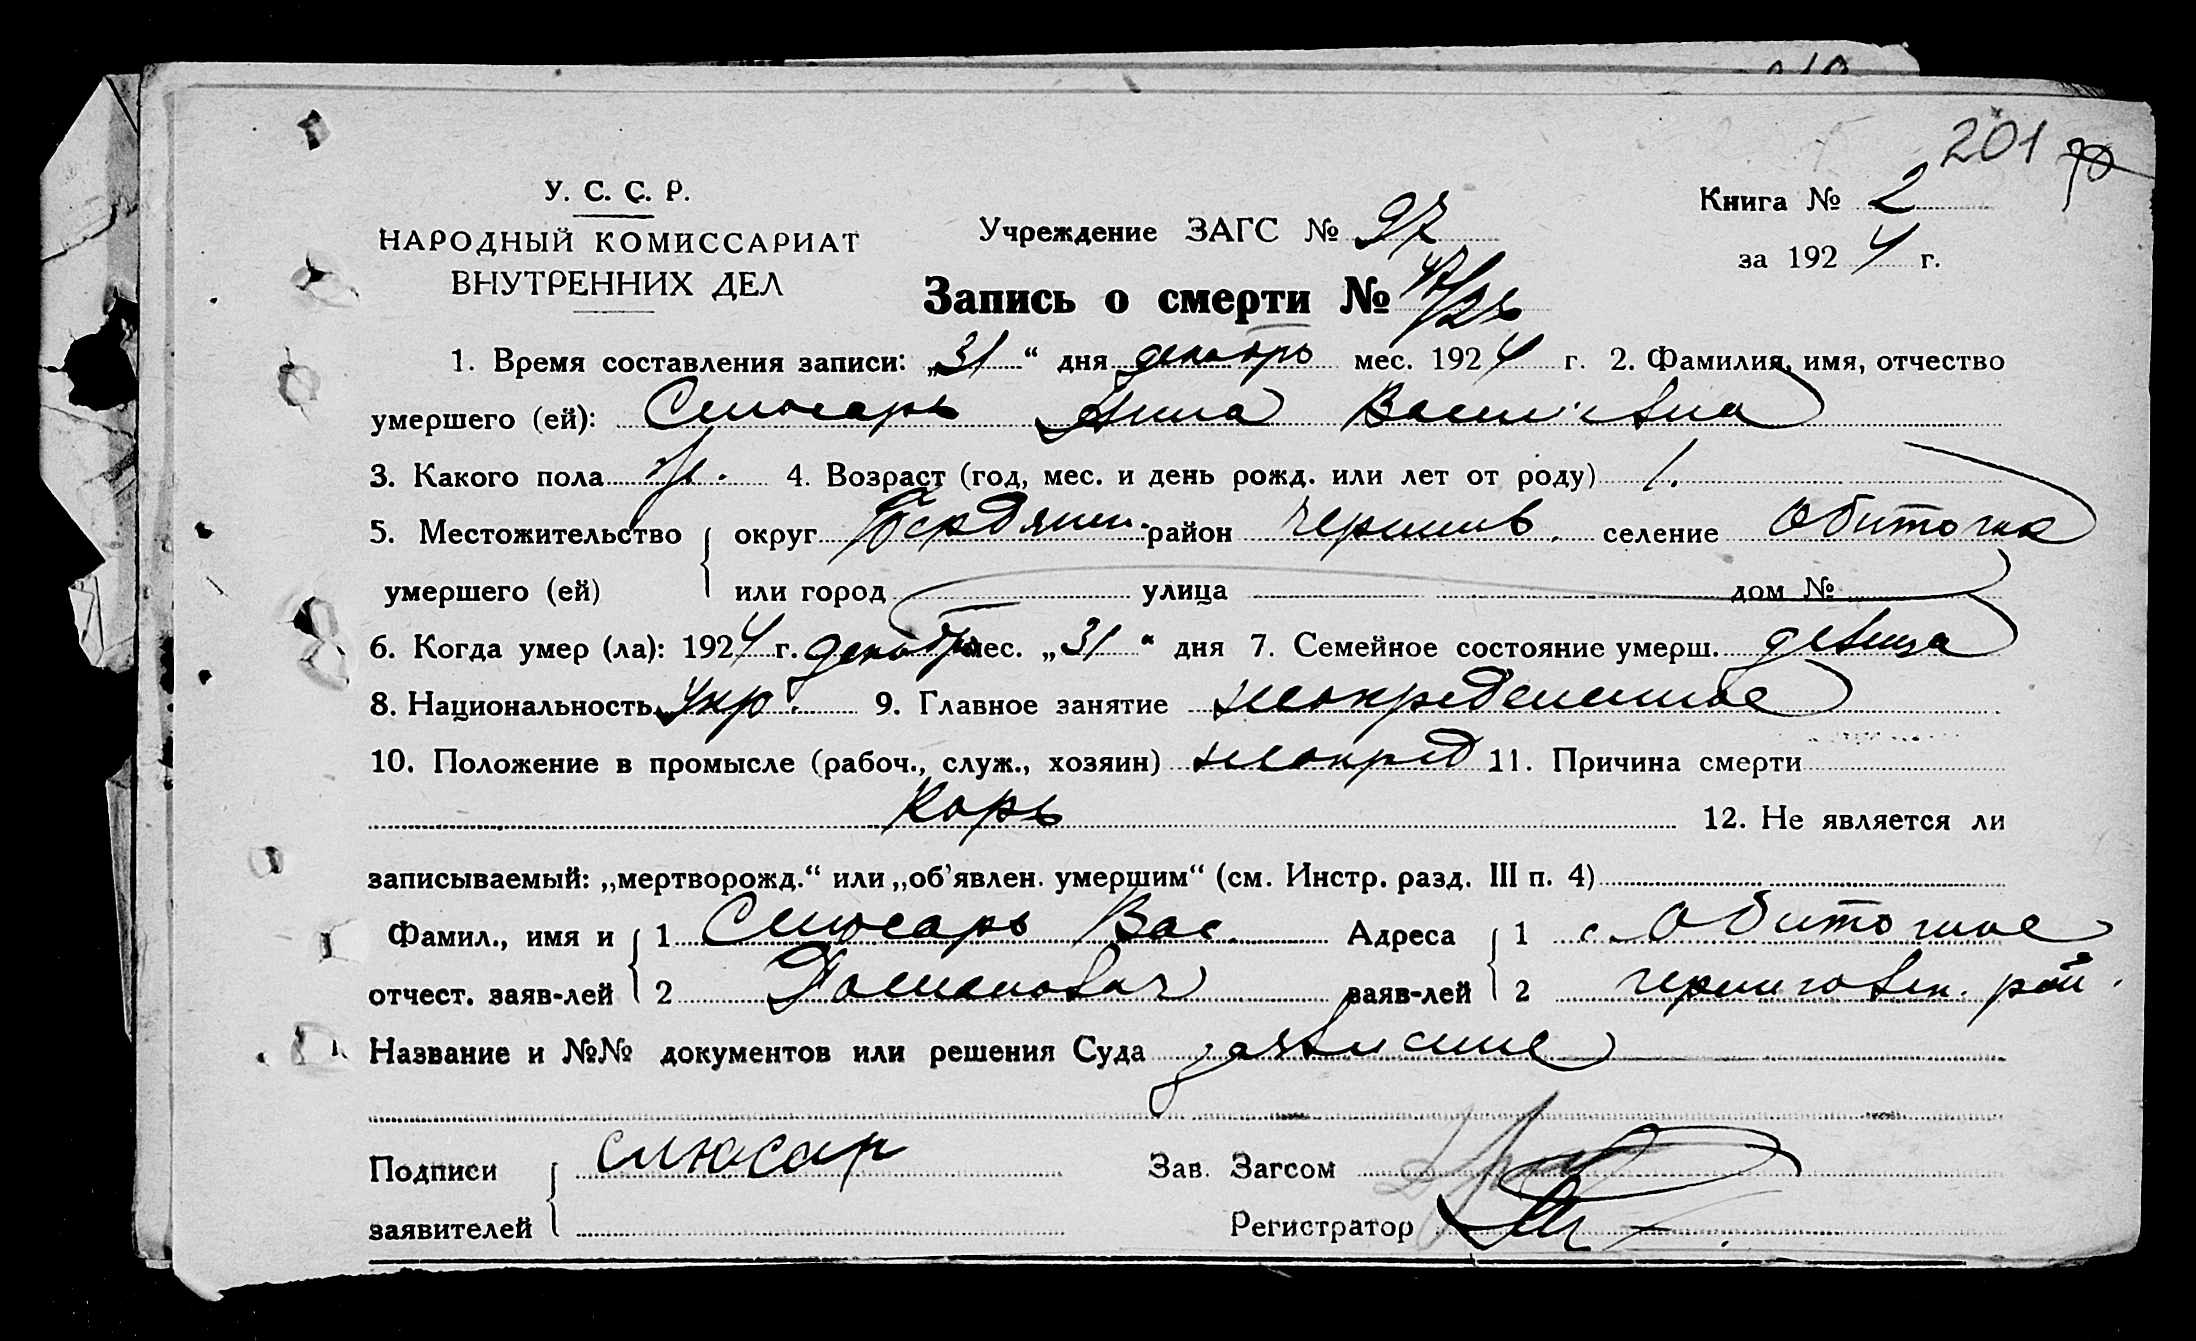 201
У. С. С. Р.
НАРОДНЫЙ КОМИССАРИАТ
ВНУТРЕННИХ ДЕЛ
Учреждение ЗАГС №
Книга № 2
за 1924 г.
Запись о смерти №
1. Время составления записи: „31“ дня декабрь мес. 1924 г. 2. Фамилия, имя, отчество
умершего (ей): Слюсарь Анна Васильевна
3. Какого пола ж. 4. Возраст (год, мес. и день рожд. или лет от роду) 1.
5. Местожительство округ Бердянш. район Черниив. селение Обиточна
умершего (ей) или город улица дом №
6. Когда умер (ла): 1924 г. декабрь мес. „31“ дня 7. Семейное состояние умерш. девица
8. Национальность Укр. 9. Главное занятие неопределенное
10. Положение в промысле (рабоч., служ., хозяин) неопред 11. Причина смерти
Корь 12. Не является ли
записываемый: „мертворожд.“ или „об’явлен. умершим“ (см. Инстр. разд. III п. 4)
Фамил., имя и 1 Слюсарь Вас. Адреса 1 с. Обиточное
отчест. заяв-лей 2 заяв-лей 2 черниговск. рай.
Название и №№ документов или решения Суда заявление
Подписи слюсар Зав. Загсом
заявителей Регистратор